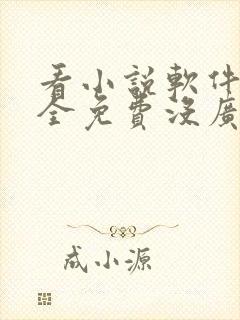 看小説軟件
全免費沒廣
成小源